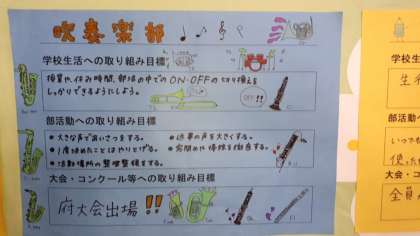 吹奏楽部
学校生活への取り組み目標
授業や休み時間、部活の中でのON-OFFの切り換えを
しっかりできるようにしよう。
OFF!!
部活動への取り組み目標
・大きな声であいさつをする。
・返事の声を大きくする。
・1度決めたことはやりとげる。
・活動場所の整理整頓をする。
大会・コンクール等への取り組み目標
府大会出場!!
学校生
部活動
いつで
使った
大会・コ
全員